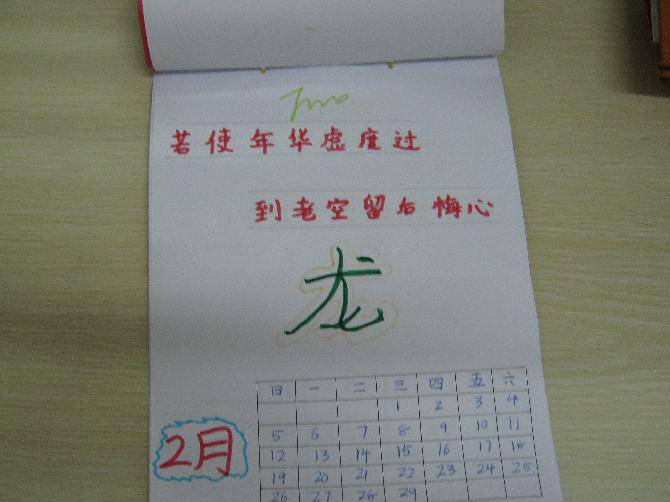 Two
若使年华虚度过
到老空留后悔心
龙
2月
日 一 二 三 四 五 六
1 2 3 4
5 6 7 8 9 10 11
12 13 14 15 16 17 18
19 20 21 22 23 24 25
26 27 28 29